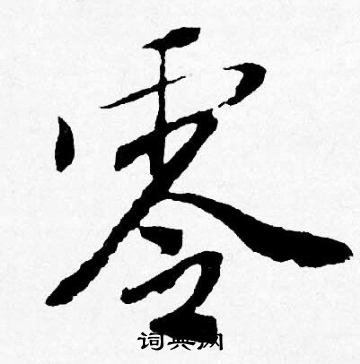 零
词典网